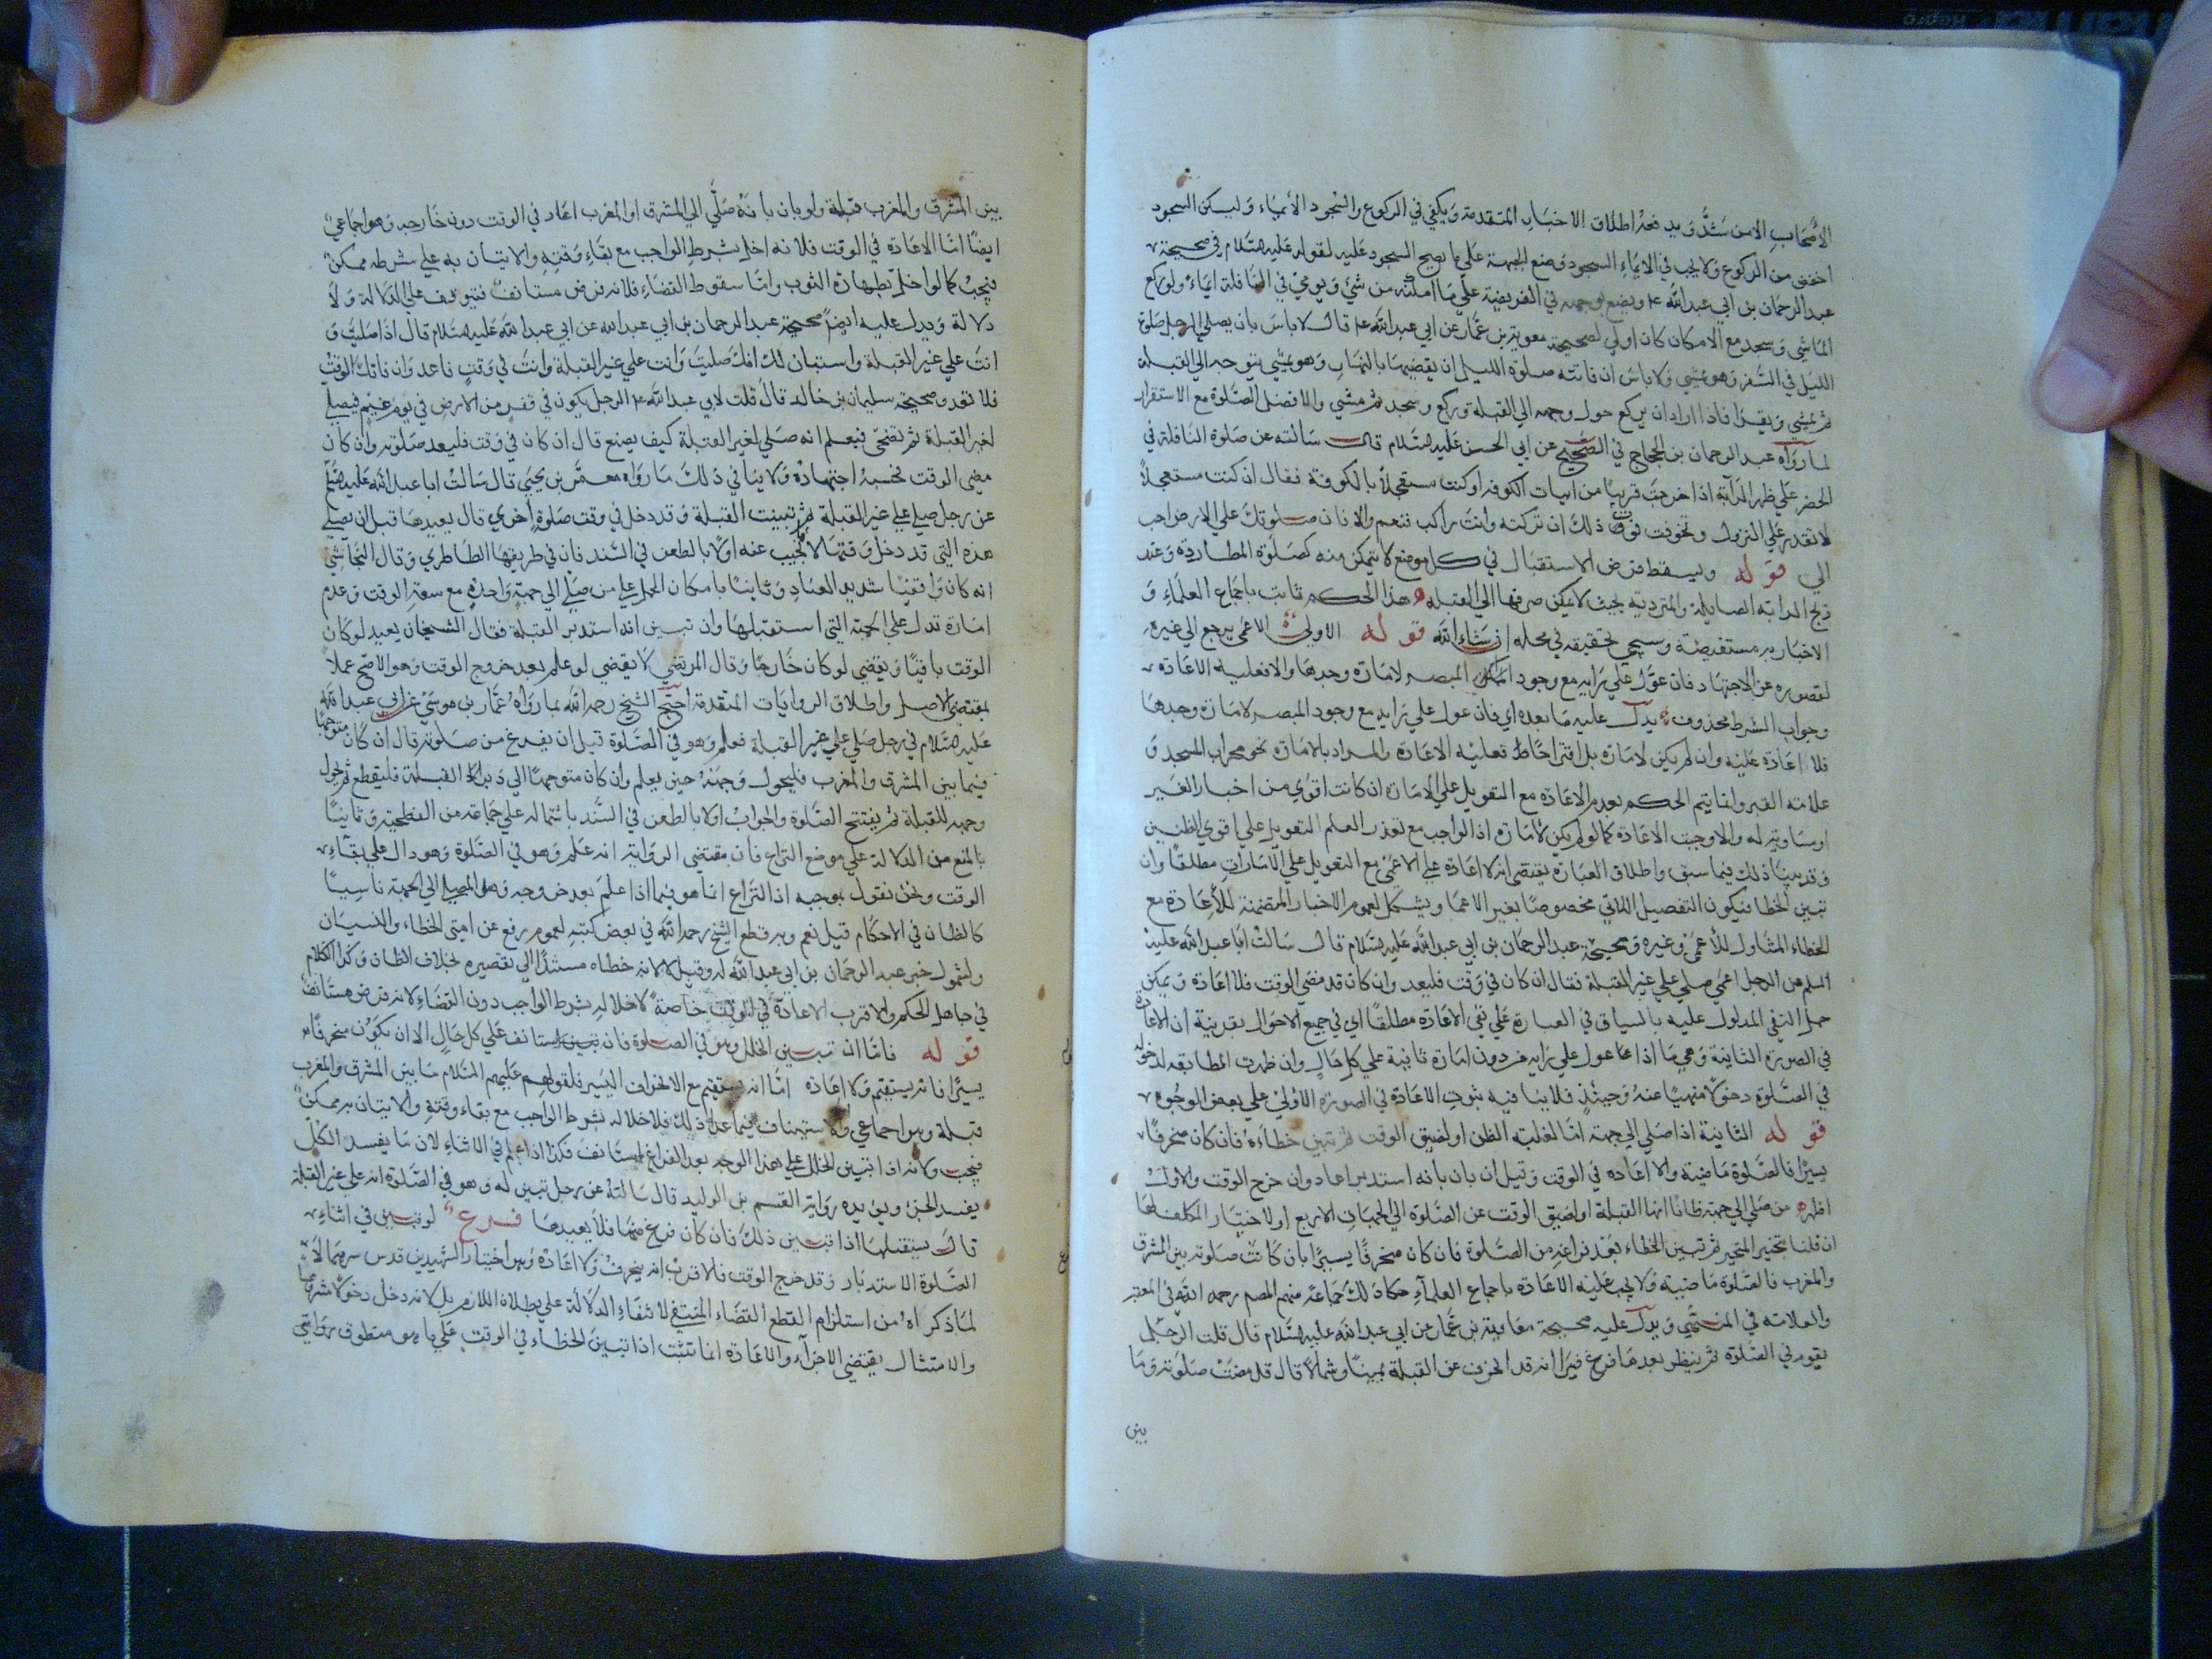 الأصحاب الا من شذ ويدفعه اطلاق الاخبار المتقدمة ويكفي في الركوع والسجود الأيماء وليكن السجود
اخفض من الركوع ولا يجب في الايماء السجود وضع الجبهة على ما يصح السجود عليه لقوله عليه السلام في صحيحة
عبد الرحمان بن ابي عبد الله ع ويضع بوجهه في الفريضة على ما امكنه من شي ويومئ في النافلة ايماء ولو ركع
الماشي وسجد مع الامكان كان اولى لصحيحة معوية بن عمار عن ابي عبد الله ع قال لا باس بان يصلي الرجل صلوة
الليل في السفر وهو يمشي ولا باس ان فاتته صلوة الليل ان يقضيها بالنهار وهو يمشي يتوجه الي القبلة
ثم يمشي ويقرا فاذا اراد ان يركع حول وجهه الي القبلة وركع وسجد ثم مشي والافضل الصلوة مع الاستقرار
لما رواه عبد الرحمان بن الحجاج في الصحيح عن ابي الحسن عليه السلام قال سالته عن صلوة النافلة في
الحضر علي ظهر الدابة اذا خرجت قريبا من ابيات الكوفة او كنت مستعجلا بالكوفة فقال ان كنت مستعجلا
لا تقدر علي النزول وتخوفت فوت ذلك ان تركته وانت راكب فنعم والا فان صلوتك علي الارض احب
الي قوله ويسقط فرض الاستقبال في كل موضع لا يتمكن منه كصلوة المطاردة وعند
ذبح الدابة الصايلة والمتردية بحيث لا يمكن صرفها الي القبلة هذا الحكم ثابت باجماع العلماء و
الاخبار به مستفيضة وسيجي تحقيقه في محله ان شاء الله قوله الاولى الاعمى يرجع الي غيره
لقصوره عن الاجتهاد فان عول علي رايه مع وجود المبصر لامارة وجدها والا فعليه الاعادة
وجواب الشرط محذوف يدل عليه ما بعده اي فان عول علي رايه مع وجود المبصر لامارة وجدها
فلا اعادة عليه وان لم يكن لامارة بل اقتراحا فعليه الاعادة والمراد بالامارة نحو محراب المسجد و
علامة القبر وانما يتم الحكم بعدم الاعادة مع التعويل علي الامارة ان كانت اقوي من اخبار الغير
او مساوية له والا وجبت الاعادة كما لو لم يكن لامارة اذ الواجب مع تعذر العلم التعويل علي اقوي الظنين
وقد بينا ذلك فيما سبق واطلاق العبارة يقتضي انه لا اعادة علي الاعمى مع التعويل علي الامارات مطلقا وان
تبين الخطا فيكون التفصيل الاتي مخصوصا بغير الاعما ويشكل لعموم الاخبار المتضمنة للاعادة مع
الخطاء المتناول للاعمى وغيره وصحيحة عبد الرحمان بن ابي عبد الله عليه السلام قال سالت ابا عبد الله عليه
السلم من الرجل اعمى صلي علي غير القبلة فقال ان كان في وقت فليعد وان كان قد مضي الوقت فلا اعادة ويمكن
حمل النفي المدلول عليه بالسياق في العبارة علي نفي الاعادة مطلقا اي في جميع الاحوال بقرينة ان الاعادة
في الصورة الثانية وهي ما اذا عول علي رايه من دون امارة ثابتة علي كل حال وان ظهرت المطابقة لدخوله
في الصلوة دخولا منهيا عنه وحينئذ فلا ينافيه ثبوت الاعادة في الصورة الاولي علي بعض الوجوه
قوله الثانية اذا صلي الي جهة اما لغلبة الظن او لضيق الوقت ثم تبين خطاءه فان كان منحرفا
يسيرا فالصلوة ماضية والا اعاده في الوقت وقيل ان بان بانه استدبر اعاد وان خرج الوقت والاول
اظهر من صلي الي جهة ظانا انها القبلة او لضيق الوقت عن الصلوة الي الجهات الاربع او لاختيار المكلف لها
ان قلنا بتخيير المتحير ثم تبين الخطاء بعد فراغه من الصلوة فان كان منحرفا يسيرا بان كانت صلوته بين المشرق
والمغرب فالصلوة ماضية ولا يجب عليه الاعادة باجماع العلماء حكا ذلك جماعة منهم المصم رحمه الله في المعتبر
والعلامة في المنتهي ويدل عليه صحيحة معاوية بن عمار عن ابي عبد الله عليه السلام قال قلت الرجل
يقوم في الصلوة ثم ينظر بعدما فرغ فيرا انه قد انحرف عن القبلة يمينا وشمالا قال قد مضت صلوته وما
بين
بين المشرق والمغرب قبلة ولو بان بانه صلي الي المشرق او المغرب اعاد في الوقت دون خارجه وهو اجماعي
ايضا اما الاعادة في الوقت فلانه اخل بشرط الواجب مع بقاء وقته والاتيان به علي شرطه ممكن
فيجب كما لو اخل بطهارة الثوب واما سقوط القضاء فلانه فرض مستانف فتتوقف علي الدلالة ولا
دلالة ويدل عليه ايضا صحيحة عبد الرحمان بن ابي عبد الله عن ابي عبد الله عليه السلام قال اذا صليت و
انت علي غير القبلة واستبان لك انك صليت وانت علي غير القبلة وانت في وقت فاعد وان فاتك الوقت
فلا تعد وصحيحة سليمان بن خالد قال قلت لابي عبد الله ع الرجل يكون في قفر من الارض في يوم غيم فيصلي
لغير القبلة ثم تضحي فيعلم انه صلي لغير القبلة كيف يصنع قال ان كان في وقت فليعد صلوته وان كان
مضي الوقت فحسبه اجتهاده ولا ينافي ذلك ما رواه معمر بن يحيي قال سالت ابا عبد الله عليه السلم
عن رجل صلي علي غير القبلة ثم تبينت القبلة وقد دخل في وقت صلوة اخري قال يعيدها قبل ان يصلي
هذه التي قد دخل وقتها لانا نجيب عنه اولا بالطعن في السند فان في طريقها الطاطري وقال النجاشي
انه كان واقفيا شديد العناد وثانيا بامكان الحمل علي من صلي الي جهة واحدة مع سعة الوقت وعدم
امارة تدل علي الجهة التي استقبلها وان تبين انه استدبر القبلة فقال الشيخان يعيد لو كان
الوقت باقيا ويقضي لو كان خارجا وقال المرتضي لا يقضي لو علم بعد خروج الوقت وهو الاصح عملا
بمقتضي الاصل واطلاق الروايات المتقدمة احتج الشيخ رحمه الله بما رواه عمار بن موسي عن ابي عبد الله
عليه السلام في رجل صلي علي غير القبلة فعلم وهو في الصلوة قبل ان يفرغ من صلوته قال ان كان متوجها
فيما بين المشرق والمغرب فليحول وجهه حين يعلم وان كان متوجها الي دبر القبلة فليقطع ثم يحول
وجهه للقبلة ثم يفتتح الصلوة والجواب اولا بالطعن في السند باشتماله علي جماعة من الفطحية وثانيا
بالمنع من الدلالة علي موضع النزاع فان مقتضي الرواية انه علم وهو في الصلوة وهو دال علي بقاء
الوقت ونحن نقول بوجبه اذ النزاع انما هو فيما اذا علم بعد خروجه وهل المصلي الي الجهة ناسيا
كالظان في الاحكام قيل نعم وبه قطع الشيخ رحمه الله في بعض كتبه لعموم رفع عن امتي الخطاء والنسيان
ولشمول خبر عبد الرحمان بن ابي عبد الله له وقيل لا لانه خطاه مستندا الي تقصيره بخلاف الظان وكذا الكلام
في جاهل الحكم والاقرب الاعادة في الوقت خاصة لاخلاله بشرط الواجب دون القضاء لانه فرض مستانف
قوله فاما ان تبين الخلل وهو في الصلوة فان تبين يستانف علي كل حال الا ان يكون منحرفا
يسيرا فانه يستقيم ولا اعادة اما انه يستقيم مع الانحراف اليسير فلقولهم عليهم السلام ما بين المشرق والمغرب
قبلة وهو اجماعي والاستيناف فيما عدا ذلك فلاخلاله بشرط الواجب مع بقاء وقته والاتيان به ممكن
فيجب ولانه اذا تبين الخلل علي هذا الوجه بعد الفراغ استانف فكذا اذا علم في الاثناء لان ما يفسد الكل
يفسد الجزء ويؤيده رواية القسم بن الوليد قال سالته عن رجل تبين له وهو في الصلوة انه علي غير القبلة
قال يستقبلها اذا تبين ذلك فان كان فرغ منها فلا يعيدها فرع لو تبين في اثناء
الصلوة الاستدبار وقد خرج الوقت فالاقرب انه ينحرف ولا اعادة وهو اختيار الشهيدين قدس سرهما لا
لما ذكراه من استلزام القطع القضاء المنتفي لانتفاء الدلالة علي بطلان اللازم بل لانه دخل دخولا مشروعا
والامتثال يقتضي الاجزاء والاعادة انما تثبت اذا تبين الخطاء في الوقت علي ما هو منطوق روايتي